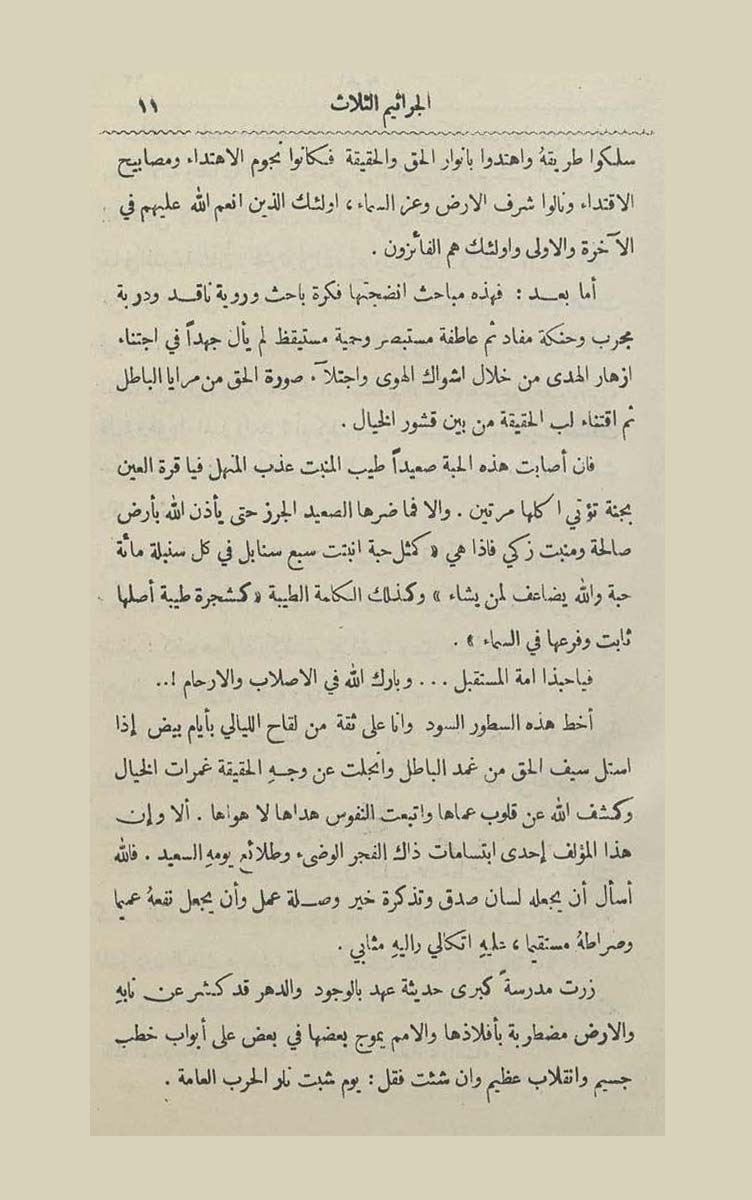 الجراثيم الثلاث ١١
سلكوا طريقهُ واهتدوا بانوار الحق والحقيقة فكانوا نجوم الاهتداء ومصابيح
الاقتداء ونالوا شرف الارض وعز السماء ، اولئك الذين انعم الله عليهم في
الآخرة والاولى واولئك هم الفائزون .
أما بعـد : فهذه مباحث انضجتها فكرة باحث وروية ناقـد ودربة
مجرب وحنكة مفاد ثم عاطفة مستبصر وحمية مستيقظ لم يأل جهداً في اجتناء
ازهار الهدى من خلال اشواك الهوى واجتلآء صورة الحق من مرايا الباطل
ثم اقتناء لب الحقيقة من بين قشور الخيال .
فان أصابت هذه الحبة صعيداً طيب المنبت عذب المنهل فيا قرة العين
بجنة تؤتي اكلها مرتين . والا فما ضرها الصعيد الجرز حتى يأذن الله بأرض
صالحة ومنبت زكي فاذا هي « كمثل حبة انبتت سبع سنابل في كل سنبلة مائة
حبة والله يضاعف لمن يشاء » وكذلك الكلمة الطيبة « كشجرة طيبة أصلها
ثابت وفرعها في السماء » .
فياحبذا امة المستقبل ... وبارك الله في الاصلاب والارحام !..
أخط هذه السطور السود وانا على ثقة من لقاح الليالي بأيام بيض إذا
استل سيف الحق من غمد الباطل وانجلت عن وجـهِ الحقيقة غمرات الخيال
وكشف الله عن قلوب عماها واتبعت النفوس هداها لا هواها . ألا وإن
هذا المؤلف إحدى ابتسامات ذاك الفجر الوضيء وطلائع يومهِ السعيد . فالله
أسأل أن يجعله لسان صدق وتذكرة خير وصـلة عمل وأن يجعل نفعهُ عميما
وصراطهُ مستقيما ، عليهِ اتكالي واليهِ مثابي .
زرت مدرسةً كبرى حديثة عهد بالوجود والدهر قد كشر عن نابهِ
والارض مضطربة بأفلاذها والامم يموج بعضها في بعض على أبواب خطب
جسيم وانقلاب عظيم وان شئت فقل : يوم شبت نار الحرب العامة .